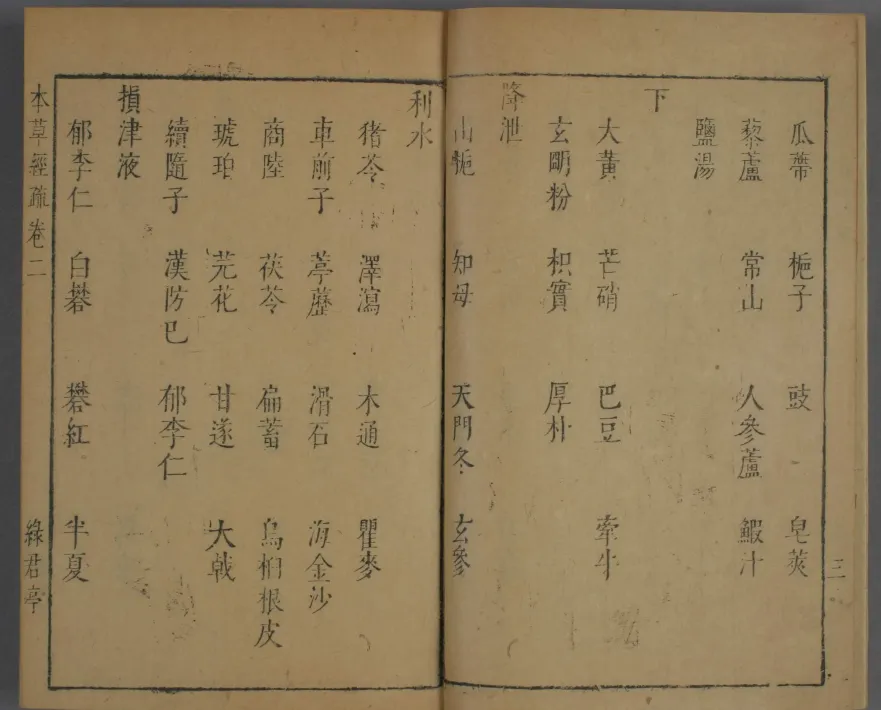 三
瓜蒂 梔子 豉 皂莢
藜蘆 常山 人參蘆 鰕汁
鹽湯
下
大黃 芒硝 巴豆 牽牛
玄明粉 枳實 厚朴
降泄
山梔 知母 天門冬 玄參
利水
猪苓 澤瀉 木通 瞿麥
車前子 葶藶 滑石 海金沙
商陸 茯苓 扁蓄 烏桕根皮
琥珀 芫花 甘遂 大戟
續隨子 漢防巳 郁李仁
損津液
郁李仁 白礬 礬紅 半夏
本草經疏卷二 綠君亭